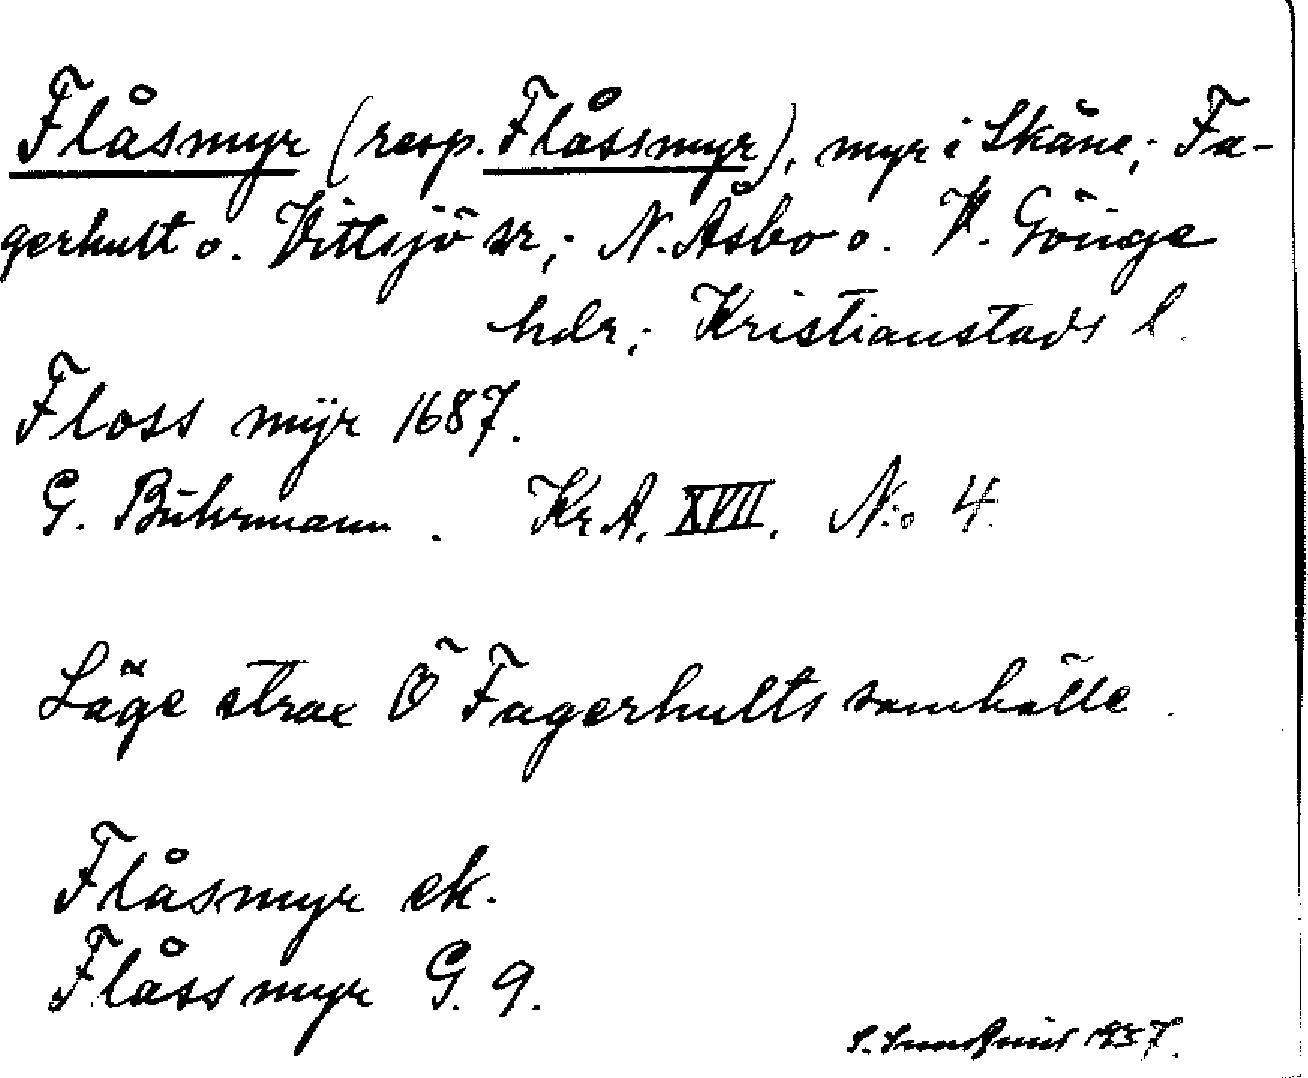 Flåsmyr (resp. Flåssmyr), myr i Skåne; Fa-
gerhult o. Vittsjö sr; N. Åsbo o. V. Göinge
hdr; Kristianstads l.
Floss mÿr 1687.
G. Buhrmann. Kr A. XVII. N:o 4.
Läge strax Ö Fagerhults samhälle.
Flåsmyr ek.
Flåssmyr G. 9.
S. 1957.